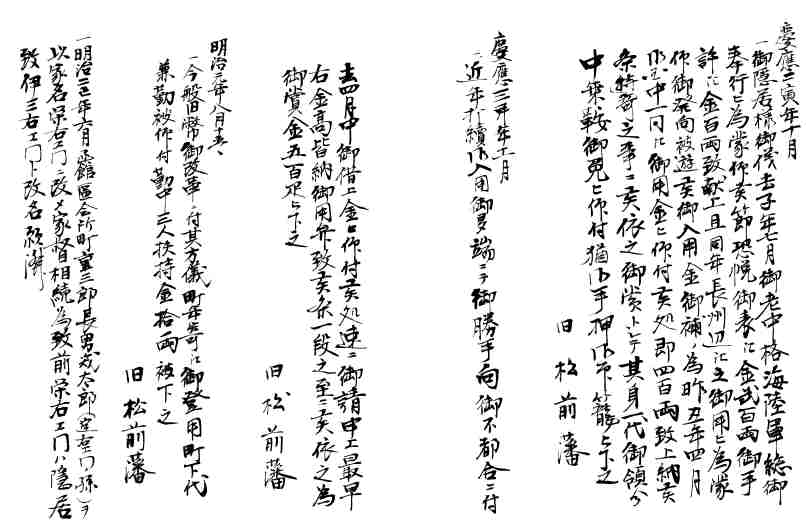 慶應二寅年十月
一御隠居様御儀去子年七月御老中格海陸軍総御
奉行ヒ為蒙仰候節恐悦御表江金弐百両御手
許江金百両致献上且同年長州辺江之御用ヒ為蒙
仰御発向被遊候御入用金御補ノ為昨丑年四月
中一同江御用金ヒ仰付候処即四百両致上納候
条特奇之事ニ候依之御賞トシテ其身一代御領分
中乗鞍御免ヒ仰付猶御手押御吊籠ヒ下之
旧松前藩
慶應三卯年十一月
一近年打続御入用御多端ニテ御勝手向御不都合ニ付
去四月中御借上金ヒ仰付候処速ニ御請申上最早
右金高皆納御用弁致候条一段之至ニ候依之為
御賞金五百疋ヒ下之
旧松前藩
明治元年八月十五日
一今般旧幣御改革ニ付其方儀町年寄江御登用町下代
兼勤被仰付勤中三人扶持金拾両被下之
旧松前藩
一明治三十二年六月函館区会所町重三郎長男茂太郎
以家名栄右エ門ニ改メ家督相続為致前栄右エ門ハ隠居
致伊三右エ門ト改名願済